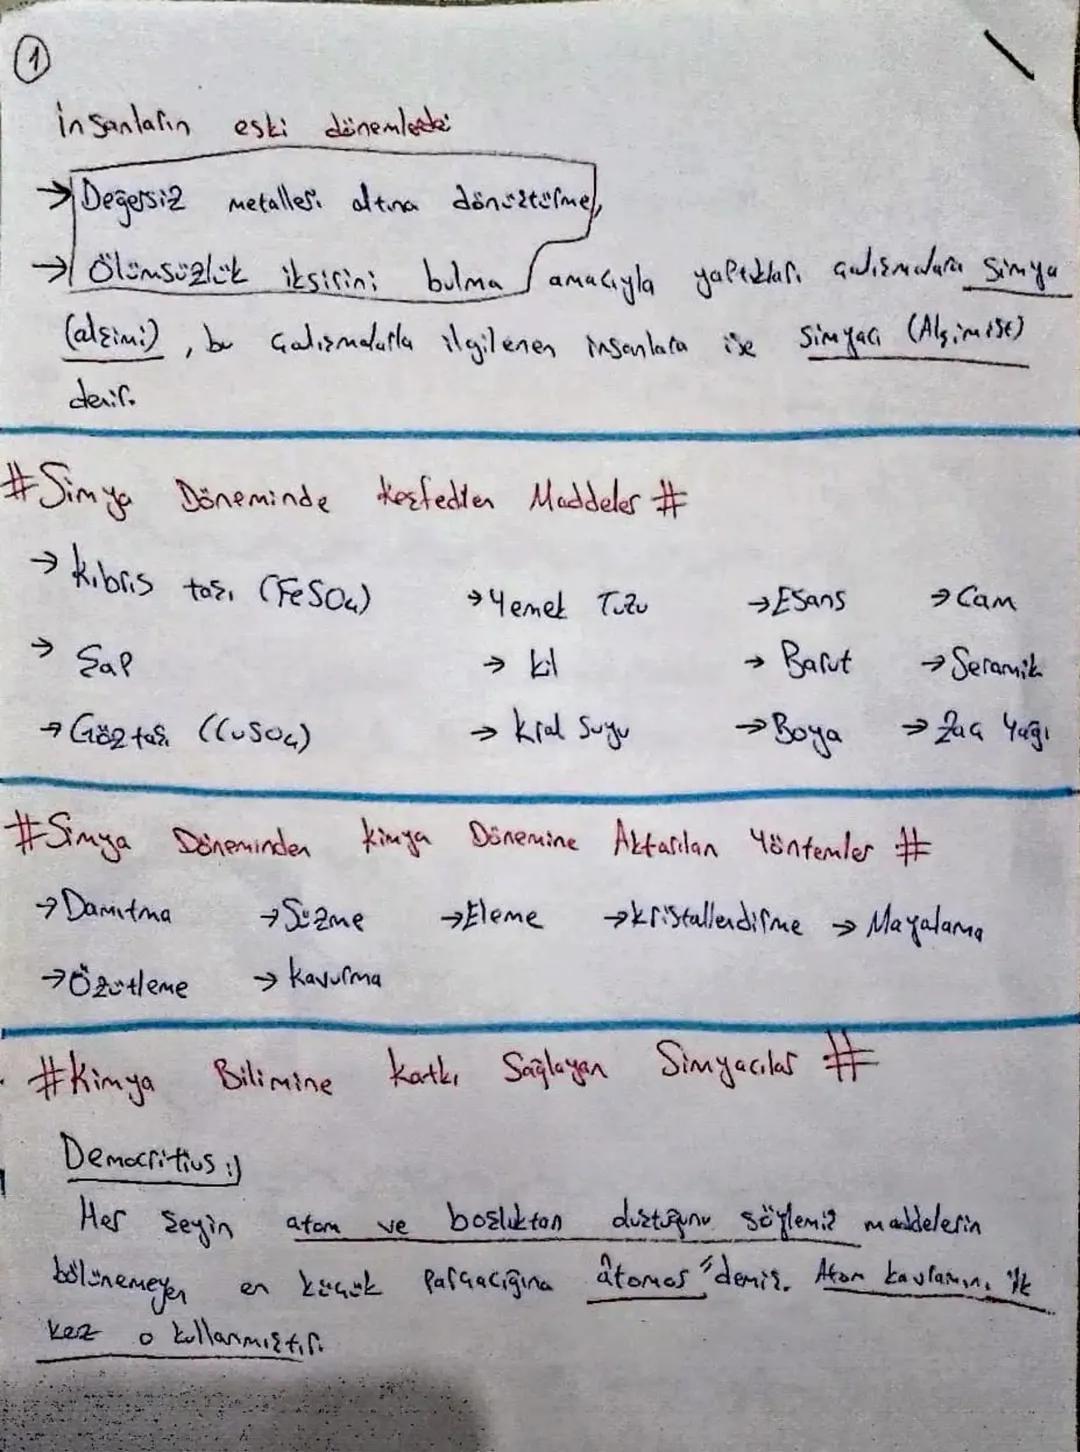 1
insanların eski dönemlerde
→ Değersiz metalleri altına dönüştürme,
→ Ölümsüzlük iksirini bulma amacıyla yaptıkları çalışmalara Simya
(alşimi), bu çalışmalarla ilgilenen insanlara ise Simyacı (Alşimist)
denir.
#Simya Döneminde Keşfedilen Maddeler #
→ Kıbrıs taşı (FeSO4) → Yemek Tuzu → Esans → Cam
→ Şap → kil → Barut → Seramik
→ Göz taşı (CuSO4) → Kral Suyu → Boya → Zaç Yağı
#Simya Döneminden Kimya Dönemine Aktarılan Yöntemler #
→ Damıtma → Süzme → Eleme → kristallendirme → Mayalama
→ Özütleme → kavurma
#Kimya Bilimine Katkı Sağlayan Simyacılar #
Democritius :)
Her şeyin atom ve boşluktan duştuğunu söylemiş maddelerin
bölünemeyen en küçük parçacığına "atomos" demiş. Atom kavramını ilk
kez o kullanmıştır.